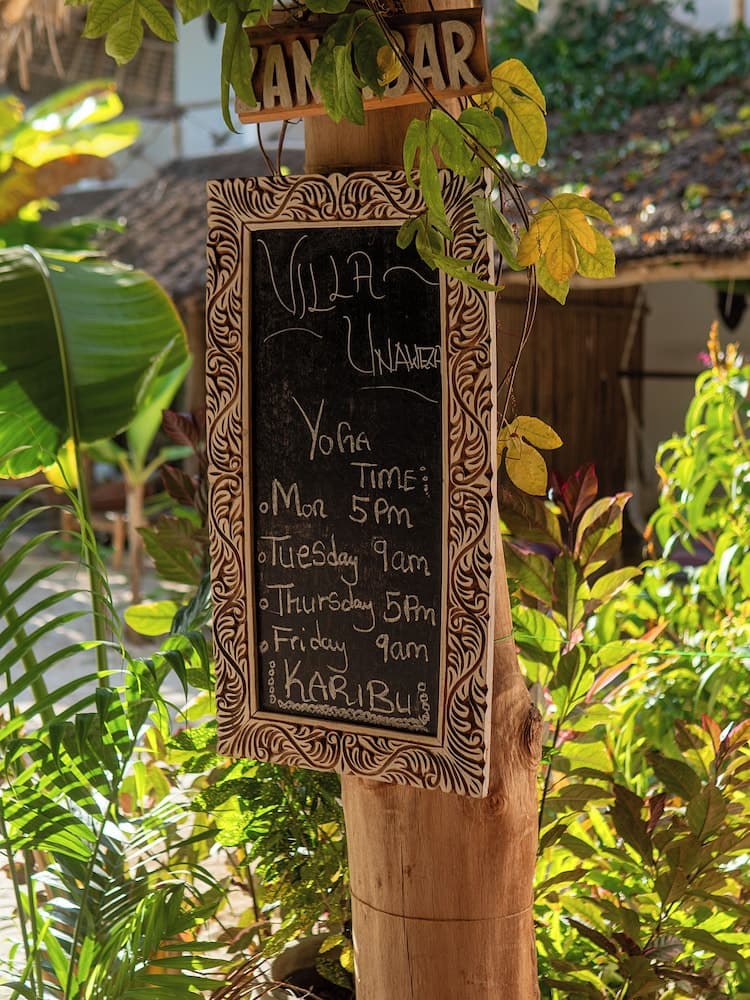 BAR
VILLA
UNAWEZA
YOGA
TIME:
Mon 5pm
Tuesday 9am
Thursday 5pm
Friday 9am
KARIBU